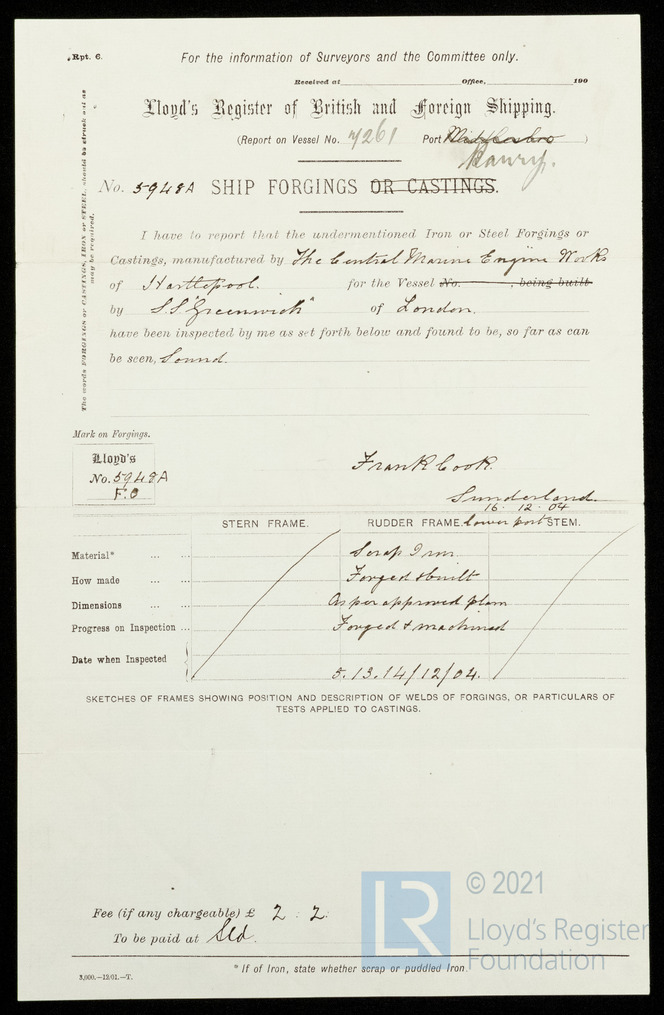 Rpt. 6.
For the information of Surveyors and the Committee only.
Received at Office, 190
Lloyd's Register of British and Foreign Shipping.
(Report on Vessel No. 7261 Port Middlesbro )
No. 5948A SHIP FORGINGS OR CASTINGS.
The words FORGINGS or CASTINGS, IRON or STEEL, should be struck out as
may be required.
I have to report that the undermentioned Iron or Steel Forgings or
Castings, manufactured by The Central Marine Engine Works
of Hartlepool. for the Vessel No. , being built
by S.S "Greenwich" of London.
have been inspected by me as set forth below and found to be, so far as can
be seen, Sound.
Mark on Forgings.
Lloyd's
No. 5948A
F.C
Frank Cook.
Sunderland.
16. 12. 04
STERN FRAME. RUDDER FRAME. lower part STEM.
Material* ... ... Scrap Iron
How made ... ... Forged & built
Dimensions ... ... As per approved plan
Progress on Inspection ... Forged & machined
Date when Inspected 5.13.14/12/04.
SKETCHES OF FRAMES SHOWING POSITION AND DESCRIPTION OF WELDS OF FORGINGS, OR PARTICULARS OF
TESTS APPLIED TO CASTINGS.
Fee (if any chargeable) £ 2 : 2 :
To be paid at Sld.
* If of Iron, state whether scrap or puddled Iron
3,000.—12/01.—T.
LR
© 2021
Lloyd's Register
Foundation